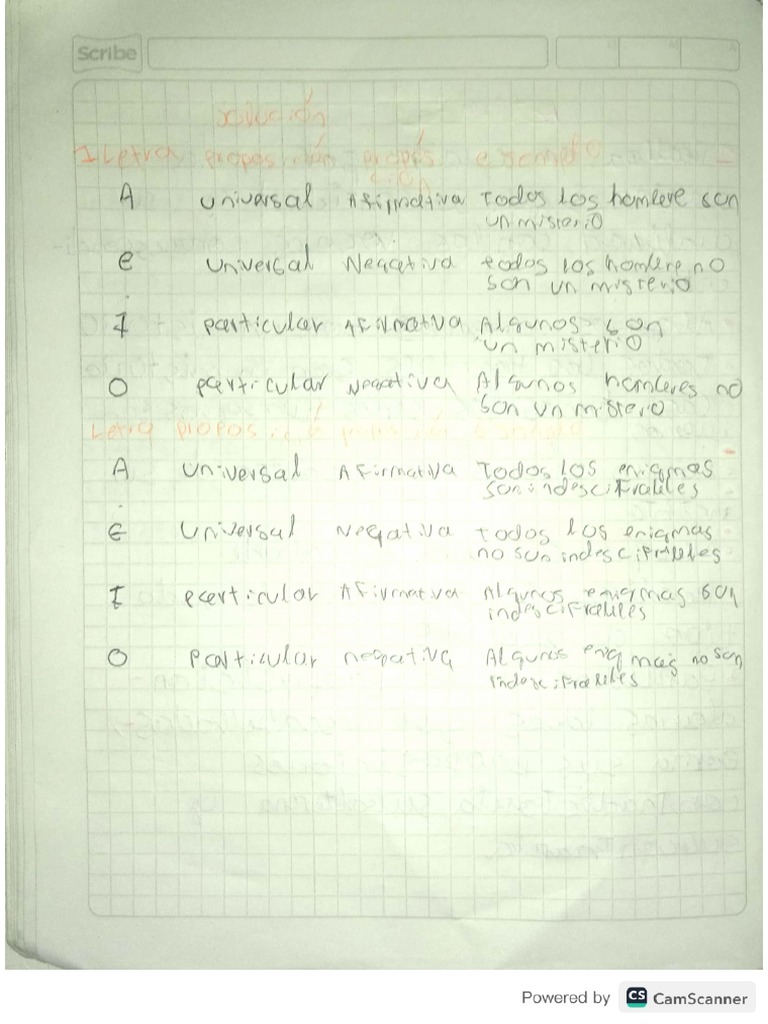 Scribe
solución
1 Letra proposición propós e ejemplo
ición
A universal Afirmativa Todos los hombre son
un misterio
e universal Negativa todos los hombre no
son un misterio
I particular Afirmativa Algunos son
un misterio
O particular Negativa Algunos hombres no
son un mistero
Letra proposició proposición ejemplo
A universal Afirmativa Todos los enigmas
son indescifrables
E Universal Negativa todos los enigmas
no son indescifrables
I particular Afirmativa Algunos enigmas son
indescifrables
O particular negativa Algunos enigmas no son
indescifrables
Powered by CS CamScanner